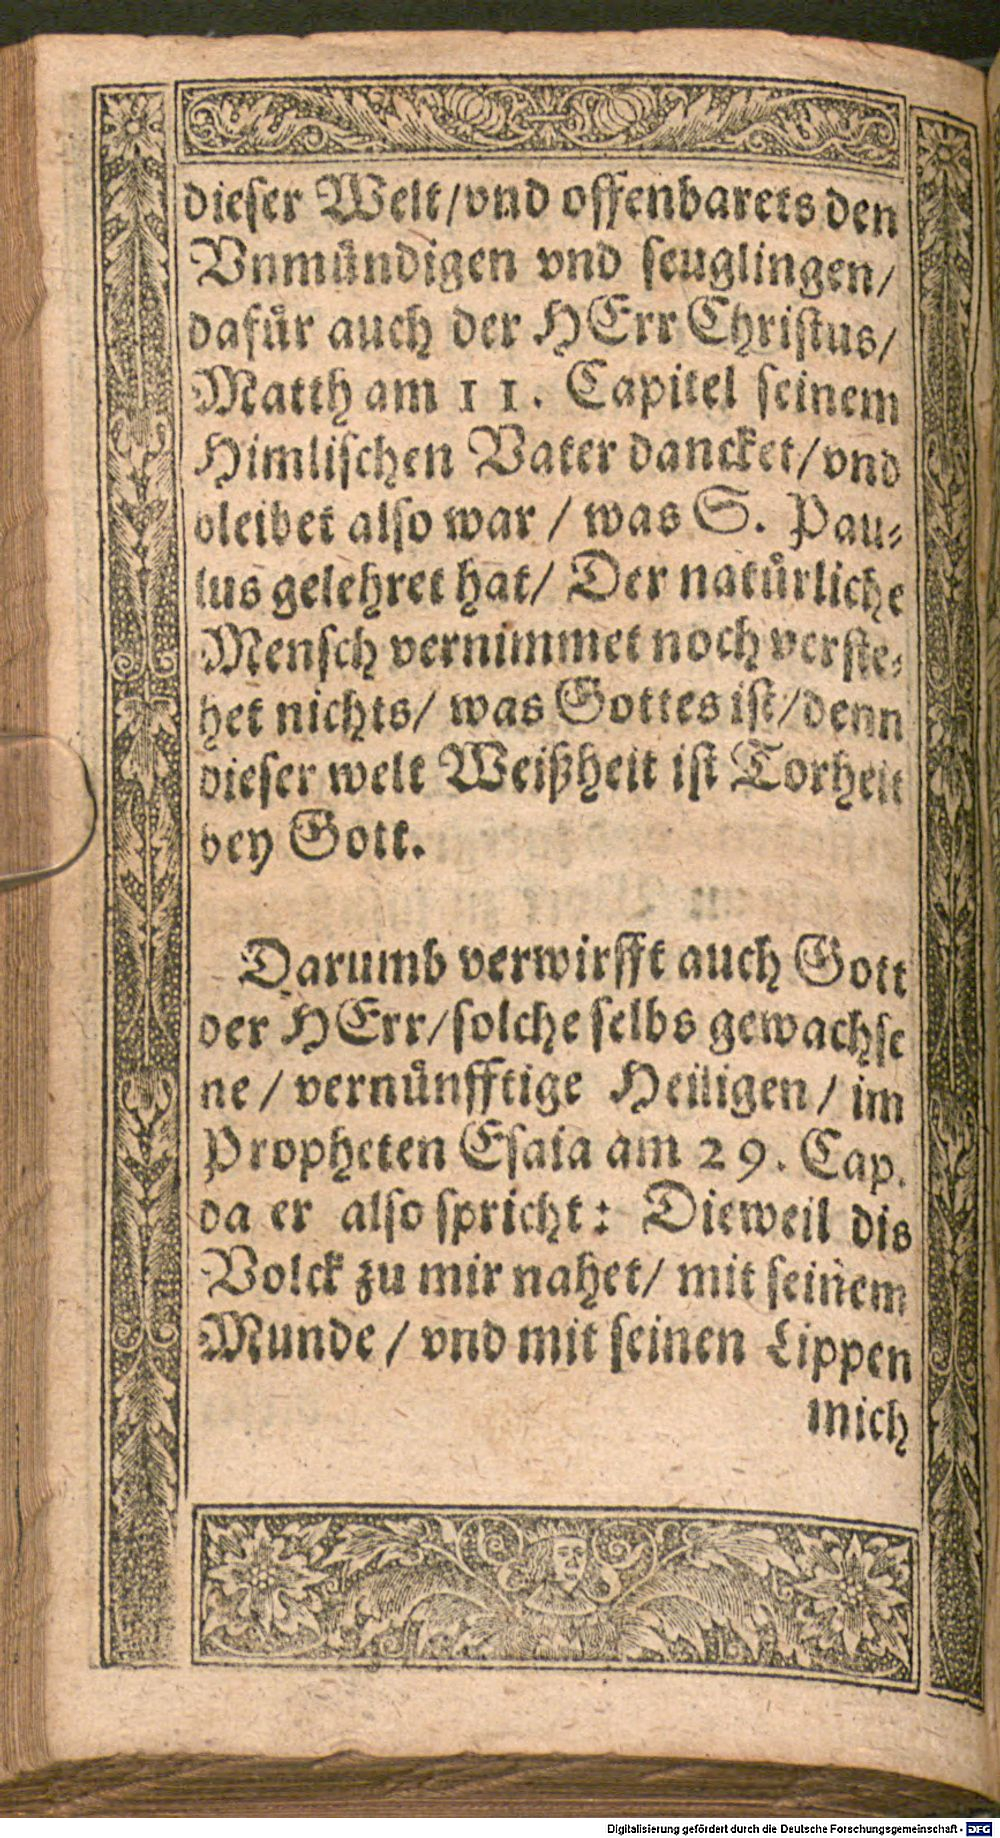 dieser Welt/vnd offenbarets den
Vnmündigen vnd seuglingen/
dafür auch der HErr Christus/
Matth am 11. Capitel seinem
Himlischen Vater dancket/vnd
bleibet also war / was S. Pau-
lus gelehret hat/ Der natürliche
Mensch vernimmet noch verste-
het nichts/ was Gottes ist/denn
dieser welt Weißheit ist Torheit
bey Gott.
Darumb verwirfft auch Gott
der HErr/solche selbs gewachse
ne / vernünfftige Heiligen / im
Propheten Esaia am 29. Cap.
da er also spricht: Dieweil dis
Volck zu mir nahet/ mit seinem
Munde / vnd mit seinen Lippen
mich
Digitalisierung gefördert durch die Deutsche Forschungsgemeinschaft - DFG